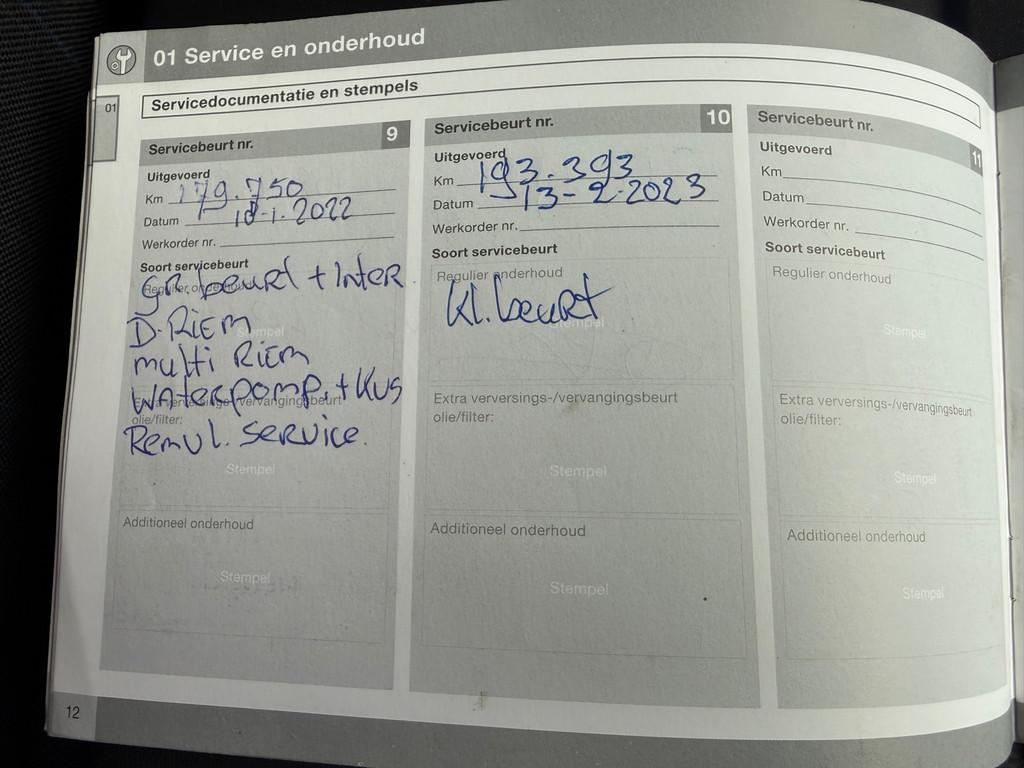 01 Service en onderhoud
01
Servicedocumentatie en stempels
Servicebeurt nr. 9
Uitgevoerd
Km 179.750
Datum 18-1-2022
Werkorder nr.
Soort servicebeurt
Regulier onderhoud
gr. beurt + Inter
D-Riem
Stempel
multi Riem
Waterpomp. + Kus
Extra verversings-/vervangingsbeurt
olie/filter:
Remvl. Service.
Stempel
Additioneel onderhoud
Stempel
Servicebeurt nr. 10
Uitgevoerd
Km 193.393
Datum 13-2-2023
Werkorder nr.
Soort servicebeurt
Regulier onderhoud
Kl. beurt
Stempel
Extra verversings-/vervangingsbeurt
olie/filter:
Stempel
Additioneel onderhoud
Stempel
Servicebeurt nr. 11
Uitgevoerd
Km
Datum
Werkorder nr.
Soort servicebeurt
Regulier onderhoud
Stempel
Extra verversings-/vervangingsbeurt
olie/filter:
Stempel
Additioneel onderhoud
Stempel
12